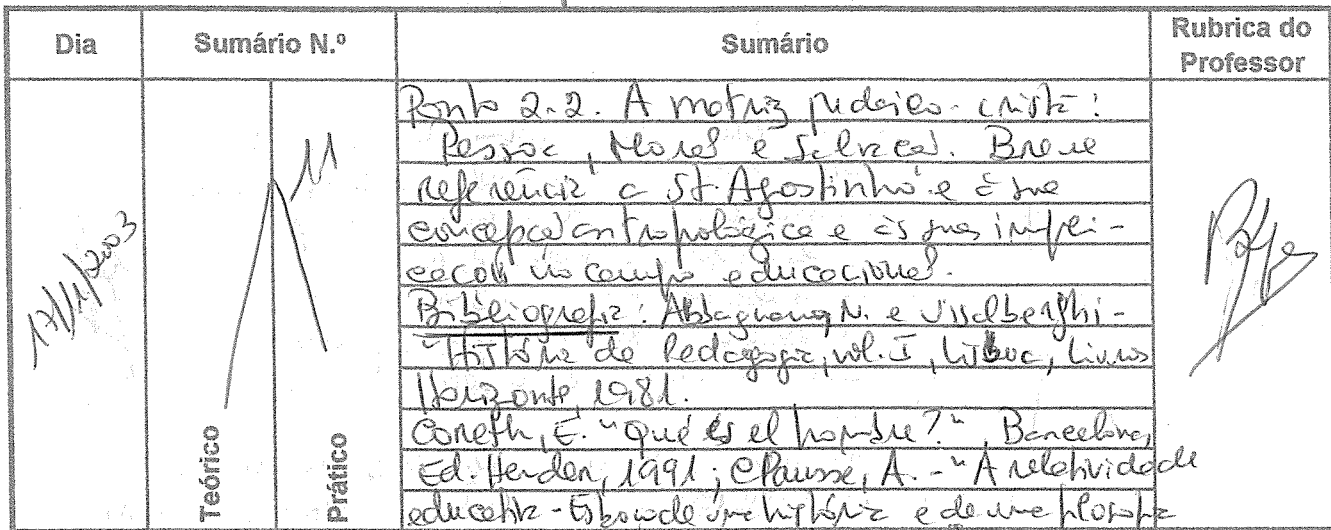 Dia Sumário N.º Sumário Rubrica do Professor
17/11/2003
11
Teórico
Prático
Ponto 2.2. A matriz judaico-cristã:
Pessoa, Moral e Salvação. Breve
referência a St. Agostinho e à sua
concepção antropológica e às suas impli-
cações no campo educacional.
Bibliografia: Abbagnano, N. e Visalberghi -
"História da Pedagogia, vol. I, Lisboa, Livros
Horizonte, 1981.
Coreth, E. "Qué es el hombre?", Barcelona,
Ed. Herder, 1991; Clausse, A. - "A relatividade
educativa - Esboço de uma história e de uma filosofia